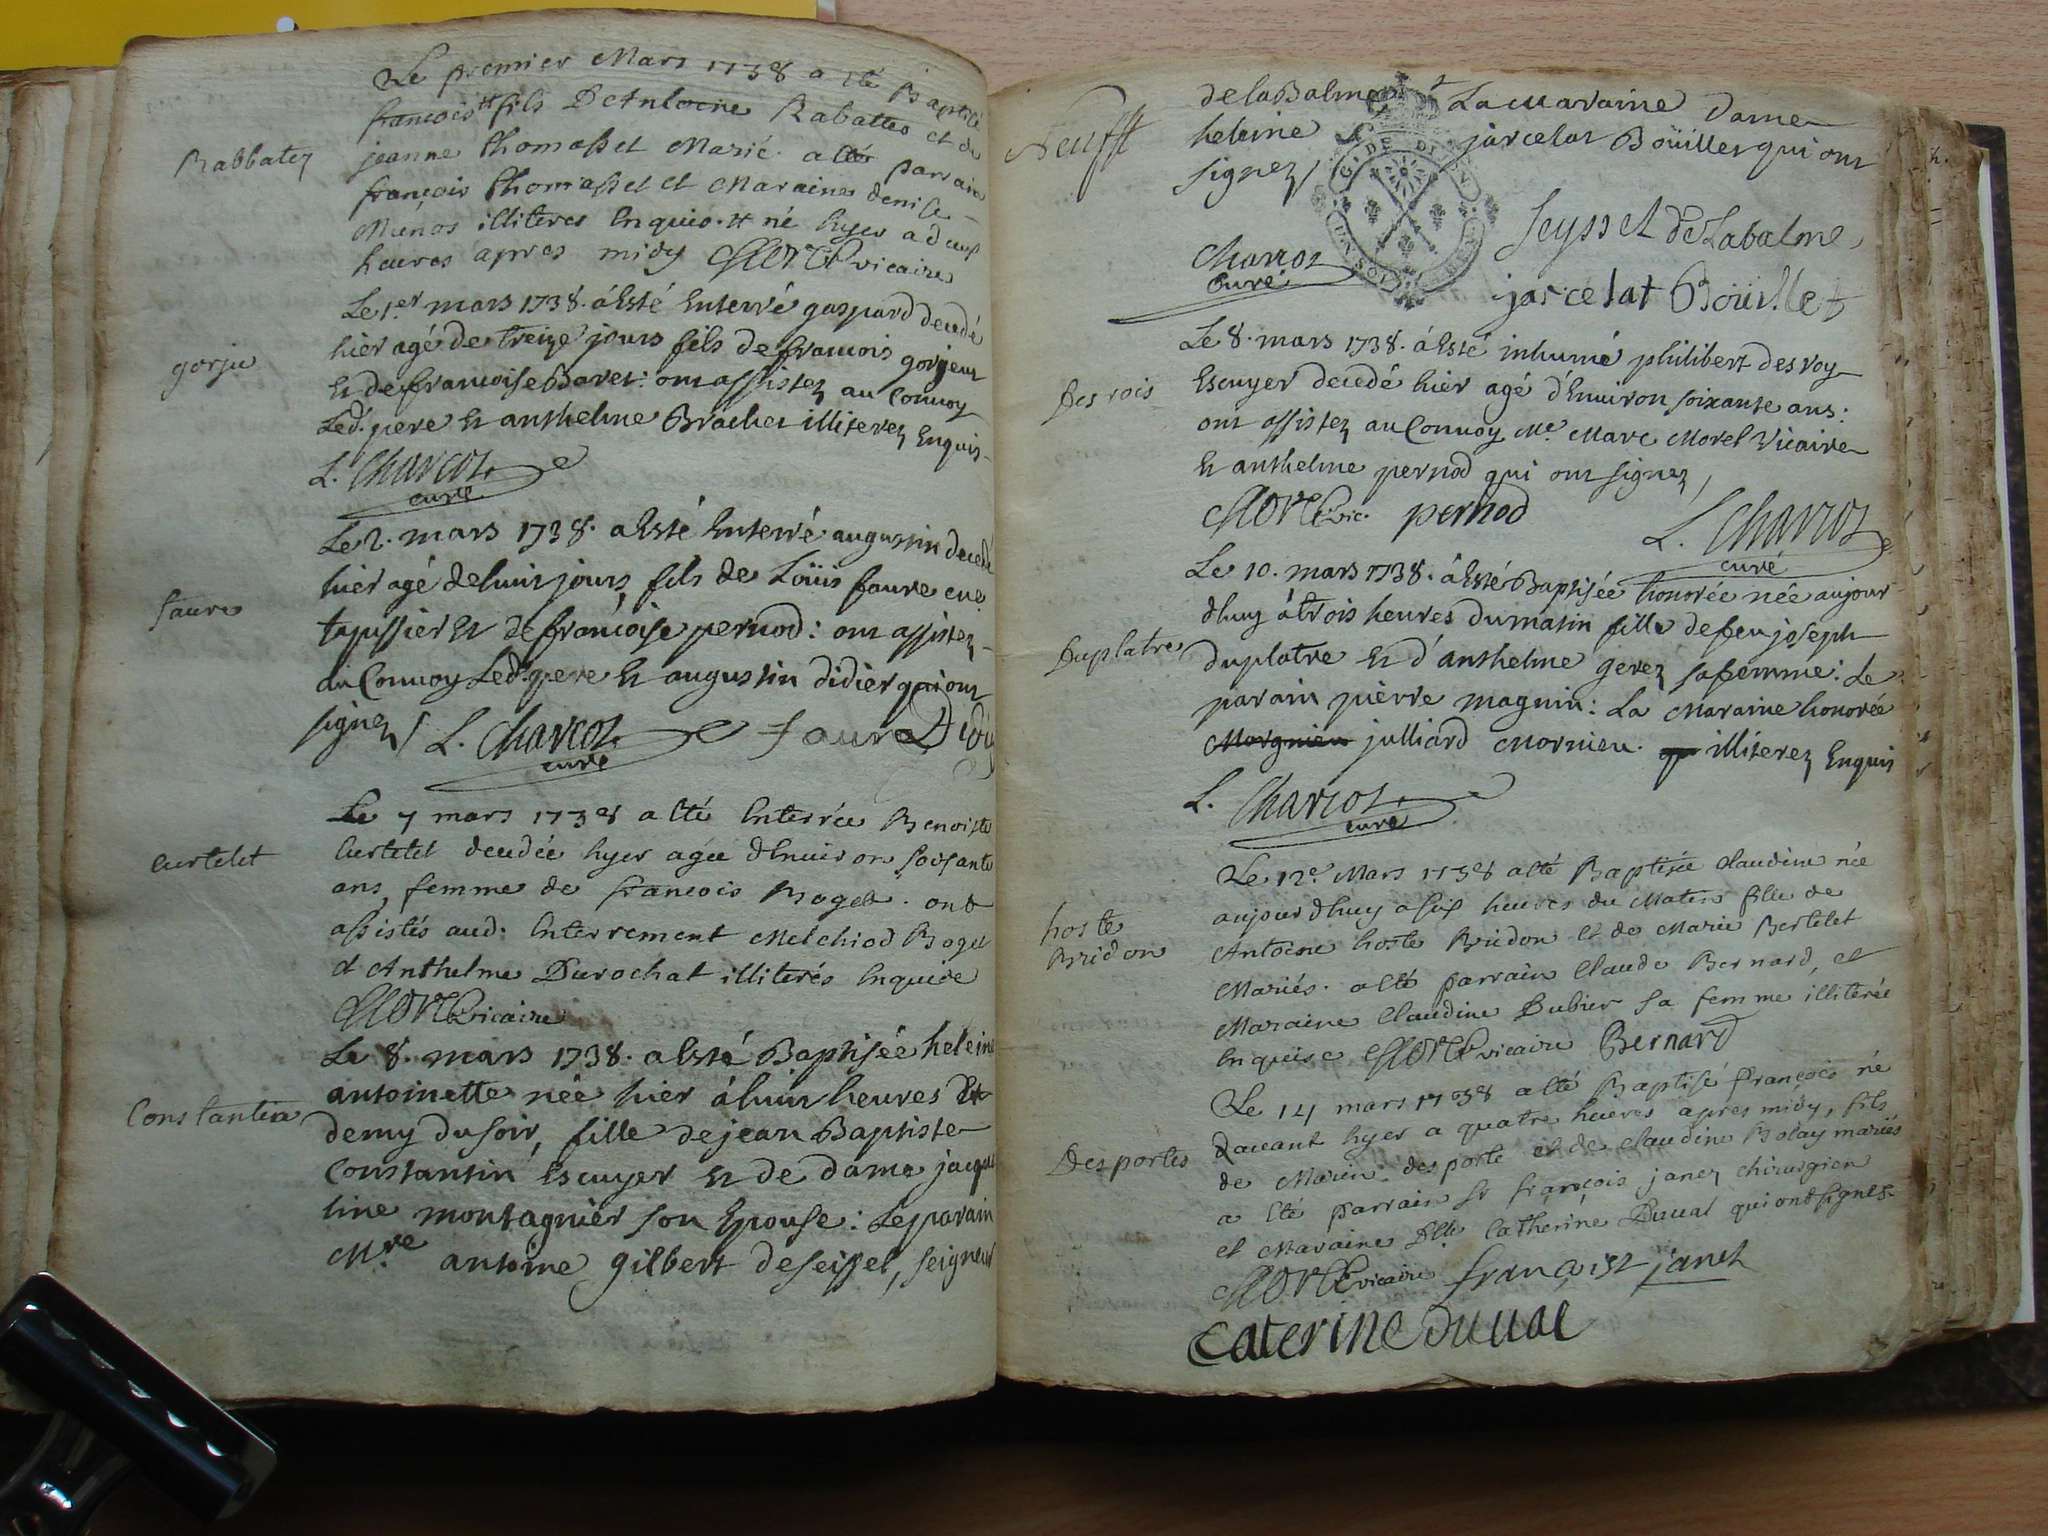 Le premier Mars 1738 a Eté Baptisé
françois # fils D'Antoene Rabattes et de
Rabbatez
jeanne thomasset Marié. a eté parrain
françois thomasset et Maraine denise
Munos illiteres Enquis. # né hyer a deux
heures apres midy Morel vicaire
Le 1.er mars 1738. á Esté Enterré gaspard decedé
hier agé de treize jours fils de francois gorjeux
gorju
Et de francoise Baret: ont assistez au Convoy
Led. pere Et anthelme Brachet illiterez Enquis
L. Charcot
curé
Le 2. mars 1738. a Esté Enterré augustin decedé
hier agé de huit jours, fils de Loüis faure
faure
tapissier Et de francoise pernod: ont assistez
au Convoy Led. pere Et augustin didier qui ont
signez / L. Charcot faure Didier
curé
Le 7 mars 1738 a eté Enterrée Benoiste
Curtelet
Curtelet decedée hyer agée d'Environ soixante
ans, femme de francois Roget. ont
assistés aud. Enterrement Melchiod Roget
et Anthelme Durochat illiterés Enquise
Morel vicaire
Le 8. mars 1738. a Esté Baptisée heleine
antoinette née hier á huit heures Et
Constantin
demy du soir, fille de jean Baptiste
Constantin Escuyer Et de dame jacque
line montagnier son Epouse: Le parain
M.re antoine gilbert de seissel, seigneur
de la Balme La Maraine Dame
heleine jarcelat Boüillet qui ont
signez /
GDE DIJON
UN SOL
Seyssel de Labalme
Charcot
Curé
jarcelat Boüillet
Le 8. mars 1738. á Esté inhumé philibert des roy
Des rois
Escuyer decedé hier agé d'Environ soixante ans:
ont assistez au Convoy Me. Marc Morel Vicaire
Et anthelme pernod qui ont signez,
Morel vic. pernod L. Charcot
curé
Le 10. mars 1738. á Esté Baptisée honorée née aujour
dhuy á trois heures du matin fille de feu joseph
Duplatre
duplatre Et d'anthelme gerez sa femme: Le
parain pierre magnin: La Maraine honorée
Morgnieu julliard mornieu. qu illiterez Enquis
L. Charcot
curé
Le 12e Mars 1738 a eté Baptisée Claudine née
aujourdhuy a six heures du Matin fille de
hoste
Bridon
Antoine hoste Bridon et de Marie Bertelet
Mariés. a eté parrain Claude Bernard, et
Maraine Claudine Dubier sa femme illiterée
Enquise Morel vicaire Bernard
Le 14 mars 1738 a eté Baptisé françois né
davant hyer a quatre heures apres midy, fils
Desportes
de Marin desporte et de Claudine Bolay mariés
a eté parrain Sr françois janez chirurgien
et Maraine Dlle Catherine Duval qui ont signes.
Morel vicaire françois janet
Caterine duual